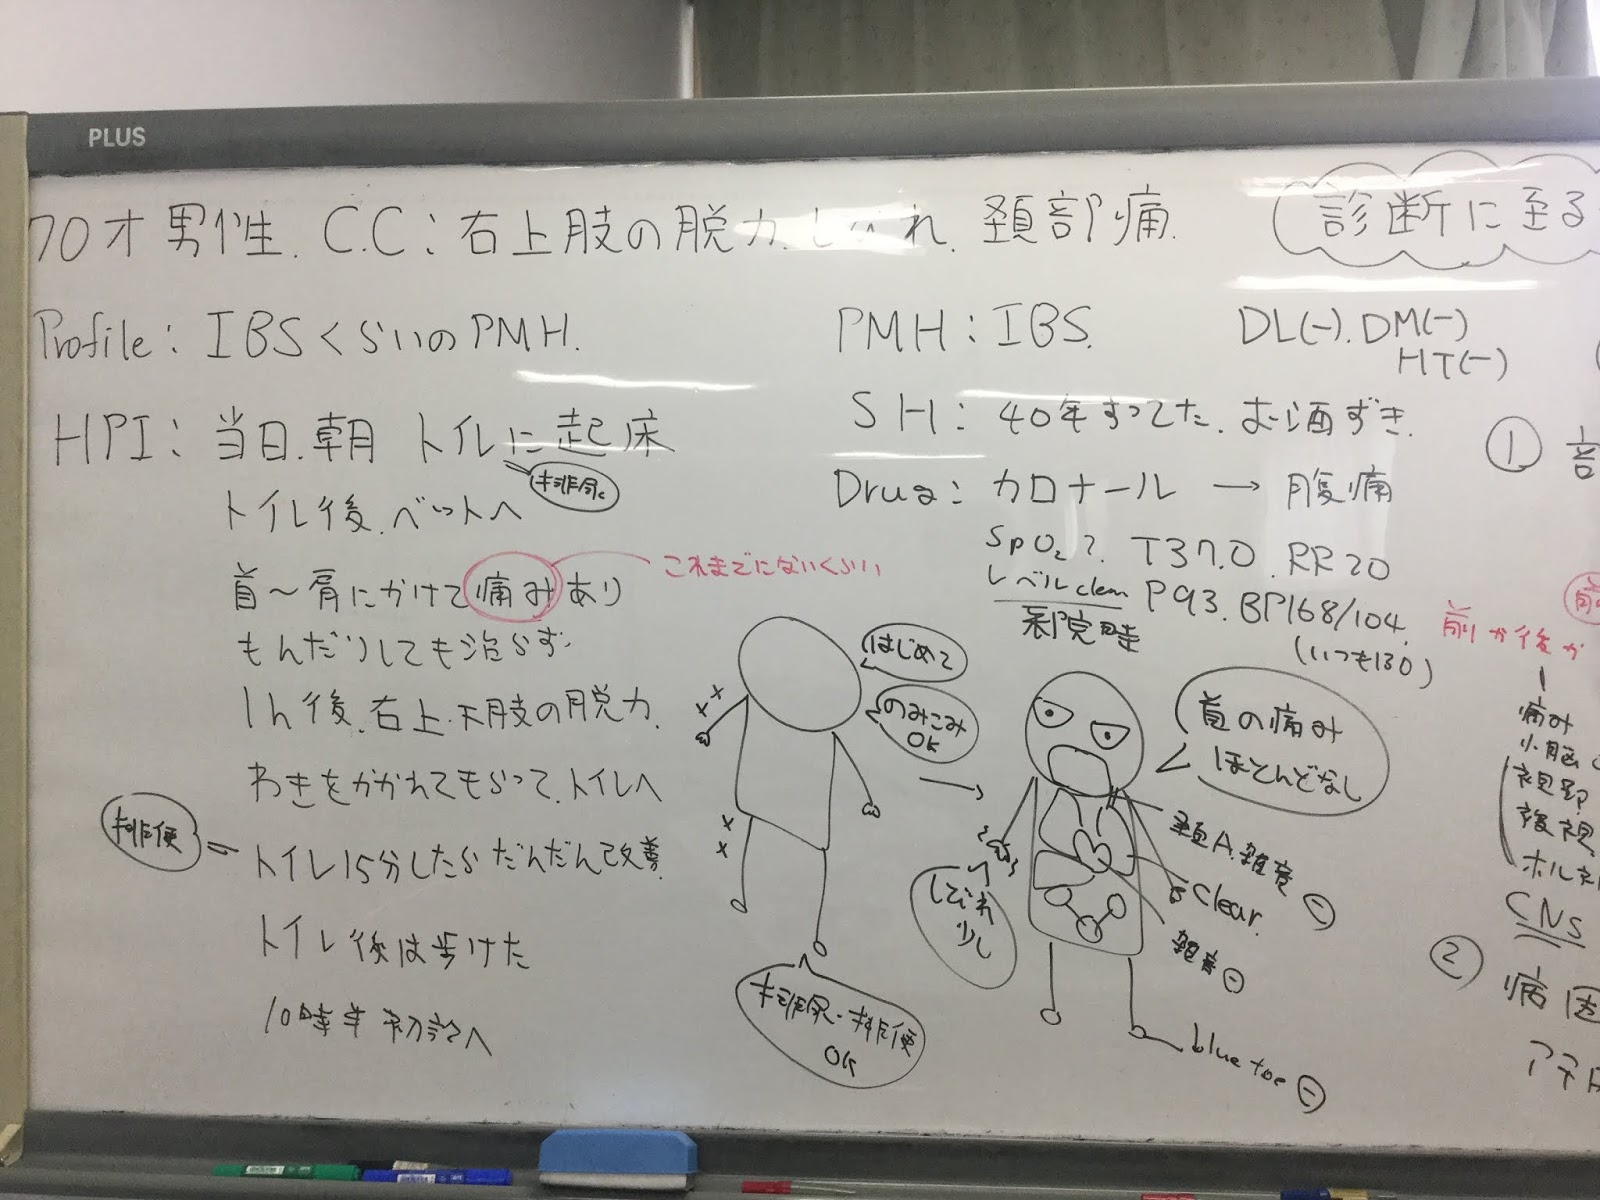 PLUS
70才男性. C.C:右上肢の脱力.しびれ.頚部痛.
診断に至る
Profile:IBSくらいのPMH.
PMH:IBS.
DL(-).DM(-)
HT(-)
SH:40年すってた.お酒ずき.
HPI:当日.朝 トイレに起床
排尿.
トイレ後.ベットへ
首〜肩にかけて痛みあり
これまでにないくらい
もんだりしても治らず.
1h後.右上.下肢の脱力.
わきをかかえてもらって.トイレへ
排便
トイレ15分したらだんだん改善.
トイレ後は歩けた
10時半初診へ
Drug:カロナール → 腹痛
SpO2?. T37.0. RR20
レベルclear P93. BP168/104.
(いつも130)
来院時
はじめて
のみこみ
OK
排尿・排便
OK
首の痛み
ほとんどなし
しびれ
少し
頚A.雑音 ⊖
Clear.
雑音 ⊖
blue toe ⊖
①
前か後か
痛み
小脳
視野
複視
CNS
② 病因